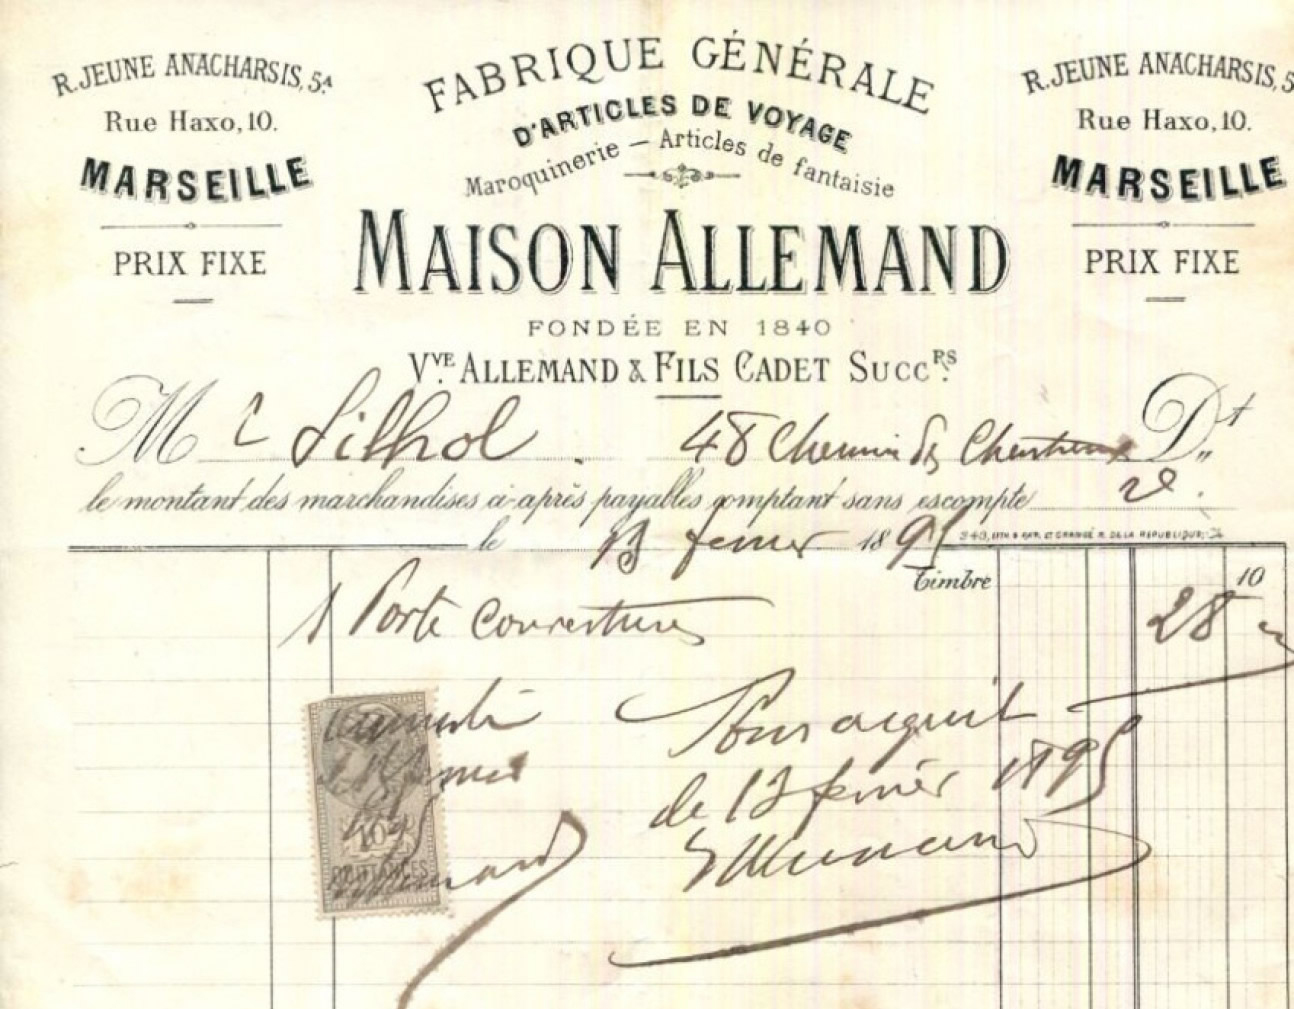 R. JEUNE ANACHARSIS, 5A
Rue Haxo, 10.
MARSEILLE
PRIX FIXE
FABRIQUE GÉNÉRALE
D'ARTICLES DE VOYAGE
Maroquinerie – Articles de fantaisie
MAISON ALLEMAND
FONDÉE EN 1840
Vve ALLEMAND & FILS CADET SUCCRS
R. JEUNE ANACHARSIS, 5
Rue Haxo, 10.
MARSEILLE
PRIX FIXE
Mr Silhol . 48 Chemin des Chartreux Dt
le montant des marchandises ci-après payables comptant sans escompte
le 13 fevrier 1895
Timbre 10
1 Porte couvertures 28
Pour acquit
le 13 février 1895
Allemand
10
QUITTANCES